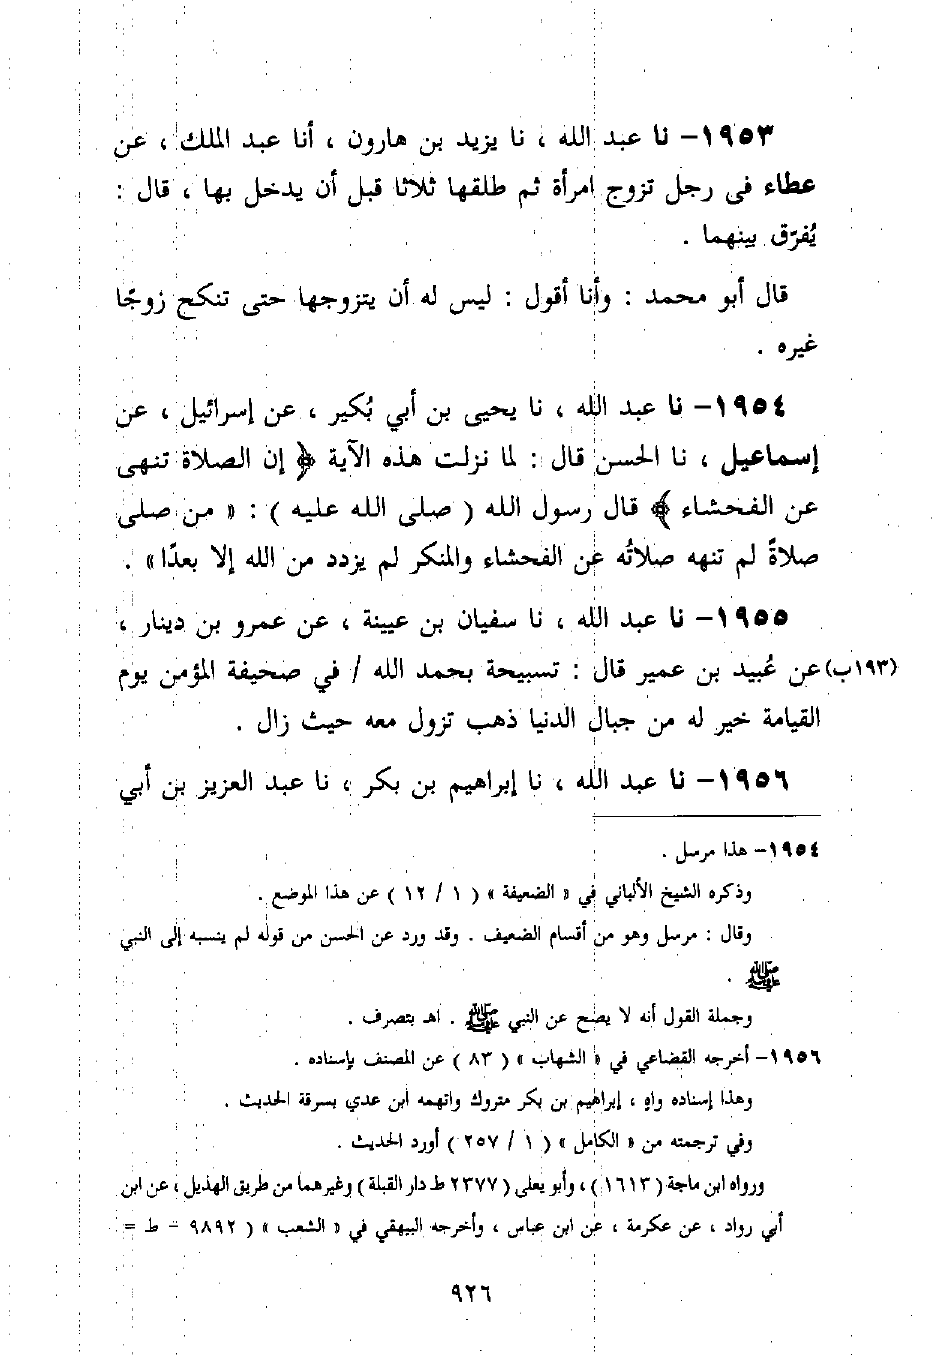 ١٩٥٣– نا عبد الله ، نا يزيد بن هارون ، أنا عبد الملك ، عن
عطاء فى رجل تزوج امرأة ثم طلقها ثلاثا قبل أن يدخل بها ، قال :
يُفرّق بينهما .
قال أبو محمد : وأنا أقول : ليس له أن يتزوجها حتى تنكح زوجًا
غيره .
١٩٥٤– نا عبد الله ، نا يحيى بن أبي بُكير ، عن إسرائيل ، عن
إسماعيل ، نا الحسن قال : لما نزلت هذه الآية ﴿ إن الصلاة تنهى
عن الفحشاء ﴾ قال رسول الله ( صلى الله عليه ) : « من صلى
صلاةً لم تنهه صلاتُه عن الفحشاء والمنكر لم يزدد من الله إلا بعدًا » .
١٩٥٥– نا عبد الله ، نا سفيان بن عيينة ، عن عمرو بن دينار ،
(١٩٣ب) عن عُبيد بن عمير قال : تسبيحة بحمد الله / في صحيفة المؤمن يوم
القيامة خير له من جبال الدنيا ذهب تزول معه حيث زال .
١٩٥٦– نا عبد الله ، نا إبراهيم بن بكر ، نا عبد العزيز بن أبي
١٩٥٤– هذا مرسل .
وذكره الشيخ الألباني في « الضعيفة » ( ١ / ١٢ ) عن هذا الموضع .
وقال : مرسل وهو من أقسام الضعيف . وقد ورد عن الحسن من قوله لم ينسبه إلى النبي
ﷺ .
وجملة القول أنه لا يصح عن النبي ﷺ . اهـ بتصرف .
١٩٥٦– أخرجه القضاعي في « الشهاب » ( ٨٣ ) عن المصنف بإسناده .
وهذا إسناده واهٍ ، إبراهيم بن بكر متروك واتهمه ابن عدي بسرقة الحديث .
وفي ترجمته من « الكامل » ( ١ / ٢٥٧ ) أورد الحديث .
ورواه ابن ماجة ( ١٦١٣ ) ، وأبو يعلى ( ٢٣٧٧ ط دار القبلة ) وغيرهما من طريق الهذيل ، عن ابن
أبي رواد ، عن عكرمة ، عن ابن عباس ، وأخرجه البيهقي في « الشعب » ( ٩٨٩٢ – ط =
٩٢٦